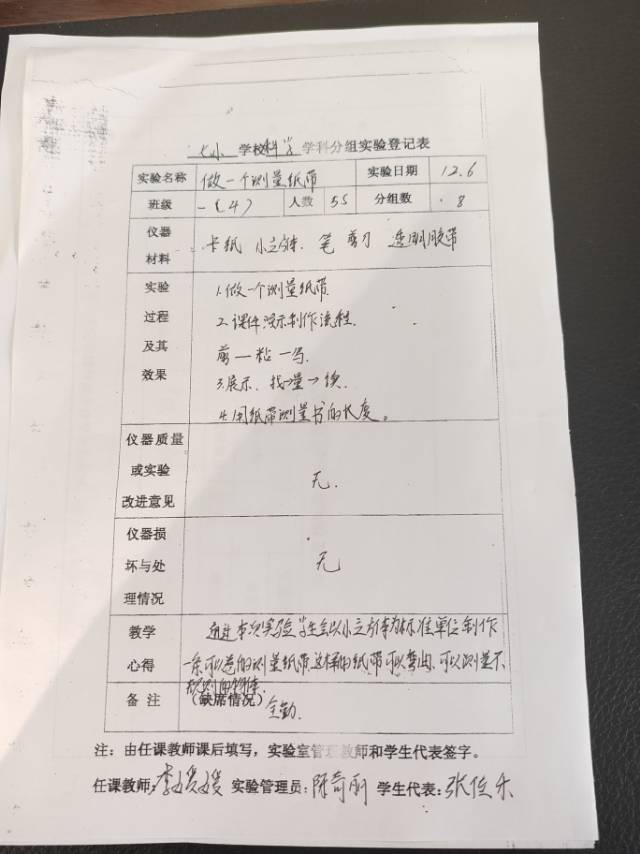 七小 学校科学 学科分组实验登记表
实验名称 做一个测量纸带 实验日期 12.6
班级 一(4) 人数 55 分组数 8
仪器材料 卡纸 小立方体. 笔 剪刀 透明胶带
实验过程及其效果
1.做一个测量纸带.
2.课件演示制作流程.
剪一粘一写.
3.展示.
4.用纸带测量书的长度。
仪器质量或实验改进意见 无.
仪器损坏与处理情况 无
教学心得 通过本次实验学生会以小立方体为标准单位制作
一条可以卷的测量纸带.这样的纸带可以弯曲.可以测量不
规则的物体.
备注 (缺席情况) 全勤.
注：由任课教师课后填写，实验室管理教师和学生代表签字。
任课教师:李媛媛 实验管理员:陈奇丽 学生代表:张